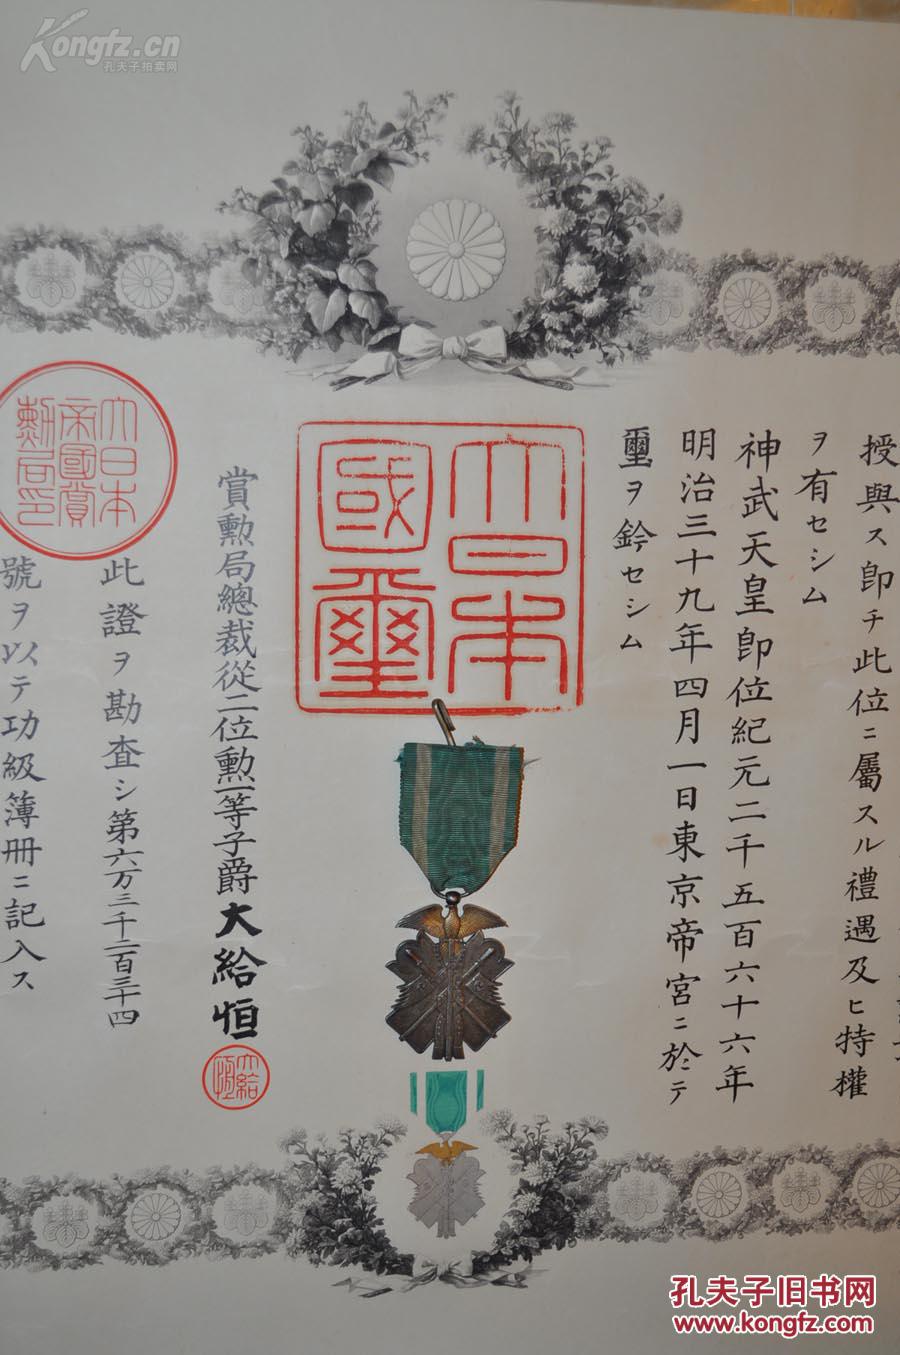 Kongfz.cn
孔夫子拍卖网
授與ス卽チ此位ニ屬スル禮遇及ヒ特權
ヲ有セシム
神武天皇卽位紀元二千五百六十六年
明治三十九年四月一日東京帝宮ニ於テ
璽ヲ鈐セシム
大日本
國璽
賞勳局總裁從二位勲一等子爵大給恒
大給恒
大日本
帝國賞
勳局印
此證ヲ勘査シ第六万三千二百三十四
號ヲ以テ功級簿册ニ記入ス
孔夫子旧书网
www.kongfz.com